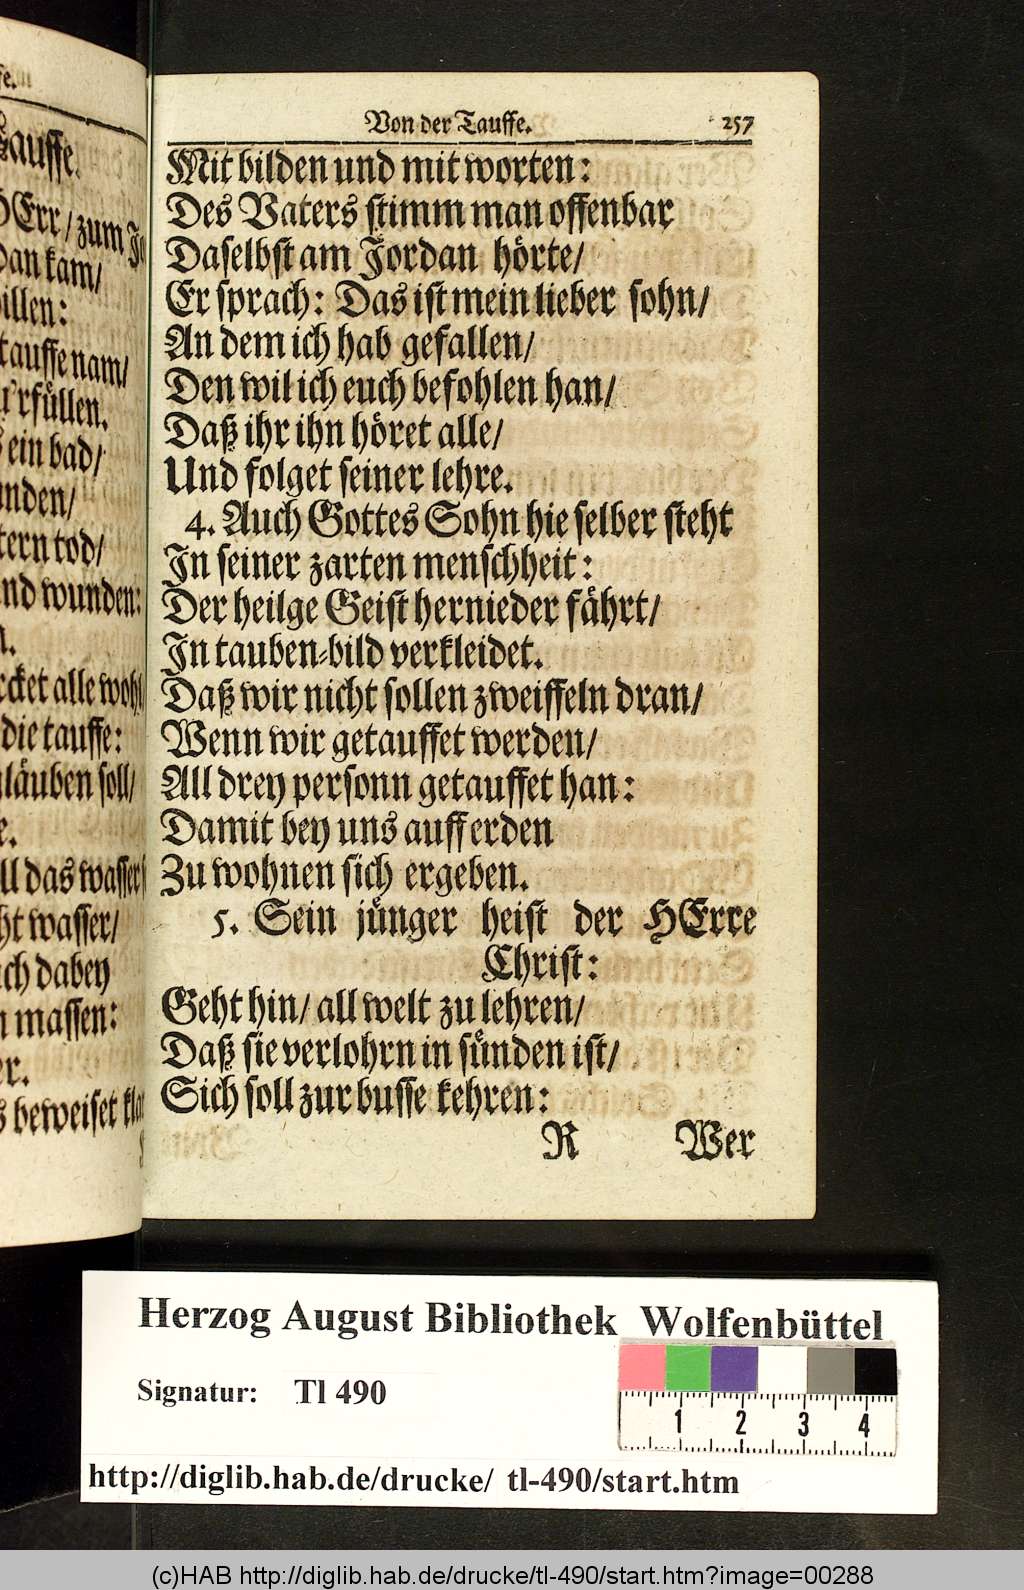 fe.
Tauffe.
HErr/ zum Jor
dan kam/
willen:
tauffe nam/
erfüllen.
ein bad/
unden/
tern tod/
und wunden:
n.
rcket alle wohl
die tauffe:
läuben soll/
e.
ll das wasser
ht wasser/
ch dabey
massen:
er.
beweiset klar
Von der Tauffe. 257
Mit bilden und mit worten:
Des Vaters stimm man offenbar
Daselbst am Jordan hörte/
Er sprach: Das ist mein lieber sohn/
An dem ich hab gefallen/
Den wil ich euch befohlen han/
Daß ihr ihn höret alle/
Und folget seiner lehre.
4. Auch Gottes Sohn hie selber steht
In seiner zarten menschheit:
Der heilge Geist hernieder fährt/
In tauben-bild verkleidet.
Daß wir nicht sollen zweiffeln dran/
Wenn wir getauffet werden/
All drey personn getauffet han:
Damit bey uns auff erden
Zu wohnen sich ergeben.
5. Sein jünger heist der HErre
Christ:
Geht hin/ all welt zu lehren/
Daß sie verlohrn in sünden ist/
Sich soll zur busse kehren:
R Wer
Herzog August Bibliothek Wolfenbüttel
Signatur: Tl 490
1 2 3 4
http://diglib.hab.de/drucke/ tl-490/start.htm
(c)HAB http://diglib.hab.de/drucke/tl-490/start.htm?image=00288